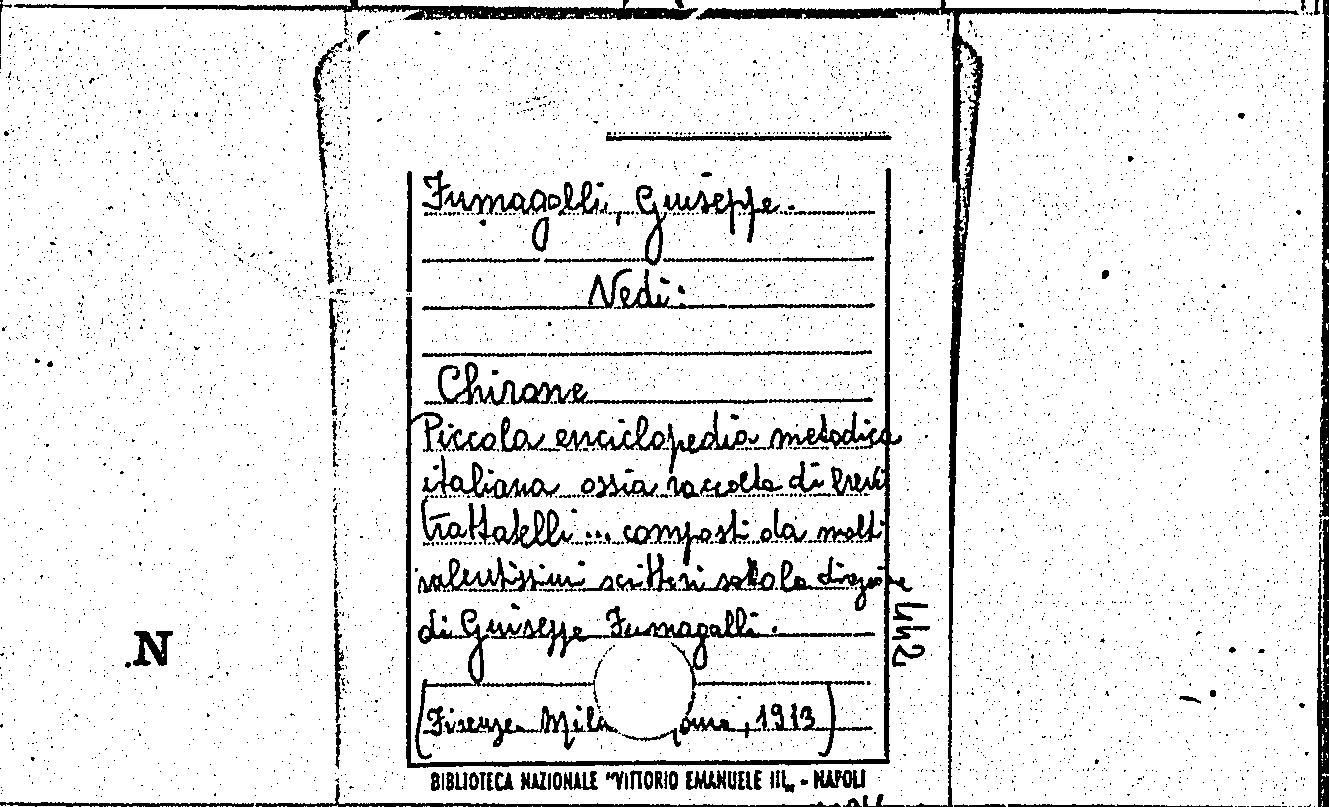 Fumagalli, Giuseppe.
Vedi:
Chirone
Piccola enciclopedia metodica
italiana ossia raccolta di brevi
trattatelli... composti da molti
valentissimi scrittori sotto la direzione
di Giuseppe Fumagalli.
(Firenze Mila oma, 1913)
442
N
BIBLIOTECA NAZIONALE "VITTORIO EMANUELE III„ - NAPOLI